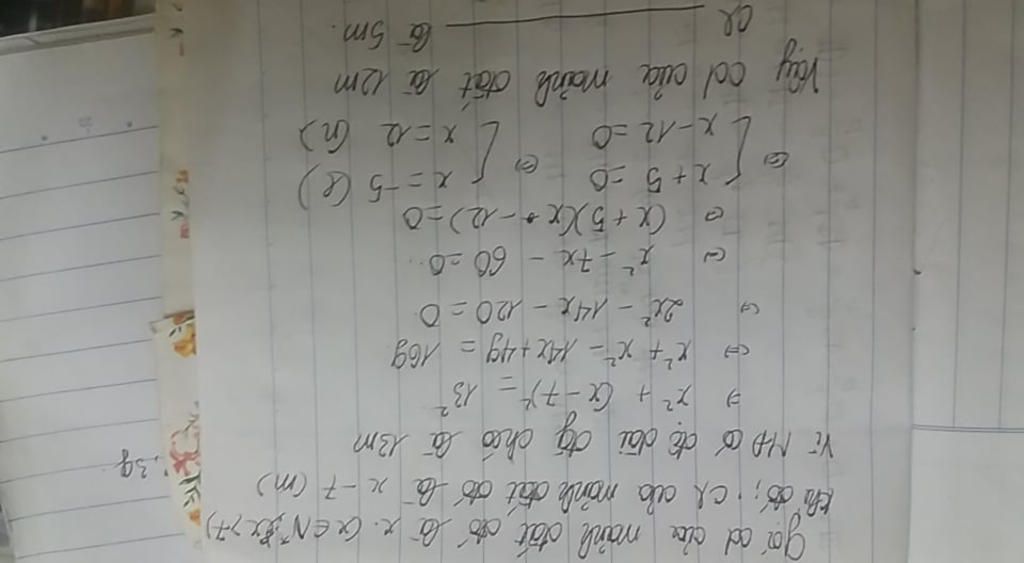 Gọi cd của mảnh đất đó là x. (x ∈ N*, x > 7)
khi đó, CR của mảnh đất đó là x - 7 (m)
Vì MĐ có độ dài đg chéo là 13m
⇒ x² + (x - 7)² = 13²
⇔ x² + x² - 14x + 49 = 169
⇔ 2x² - 14x - 120 = 0
⇔ x² - 7x - 60 = 0
⇔ (x + 5)(x - 12) = 0
⇔ [ x + 5 = 0 ⇔ [ x = -5 (l)
x - 12 = 0 x = 12 (n)
Vậy cd của mảnh đất là 12m
CR ———— là 5m.
39